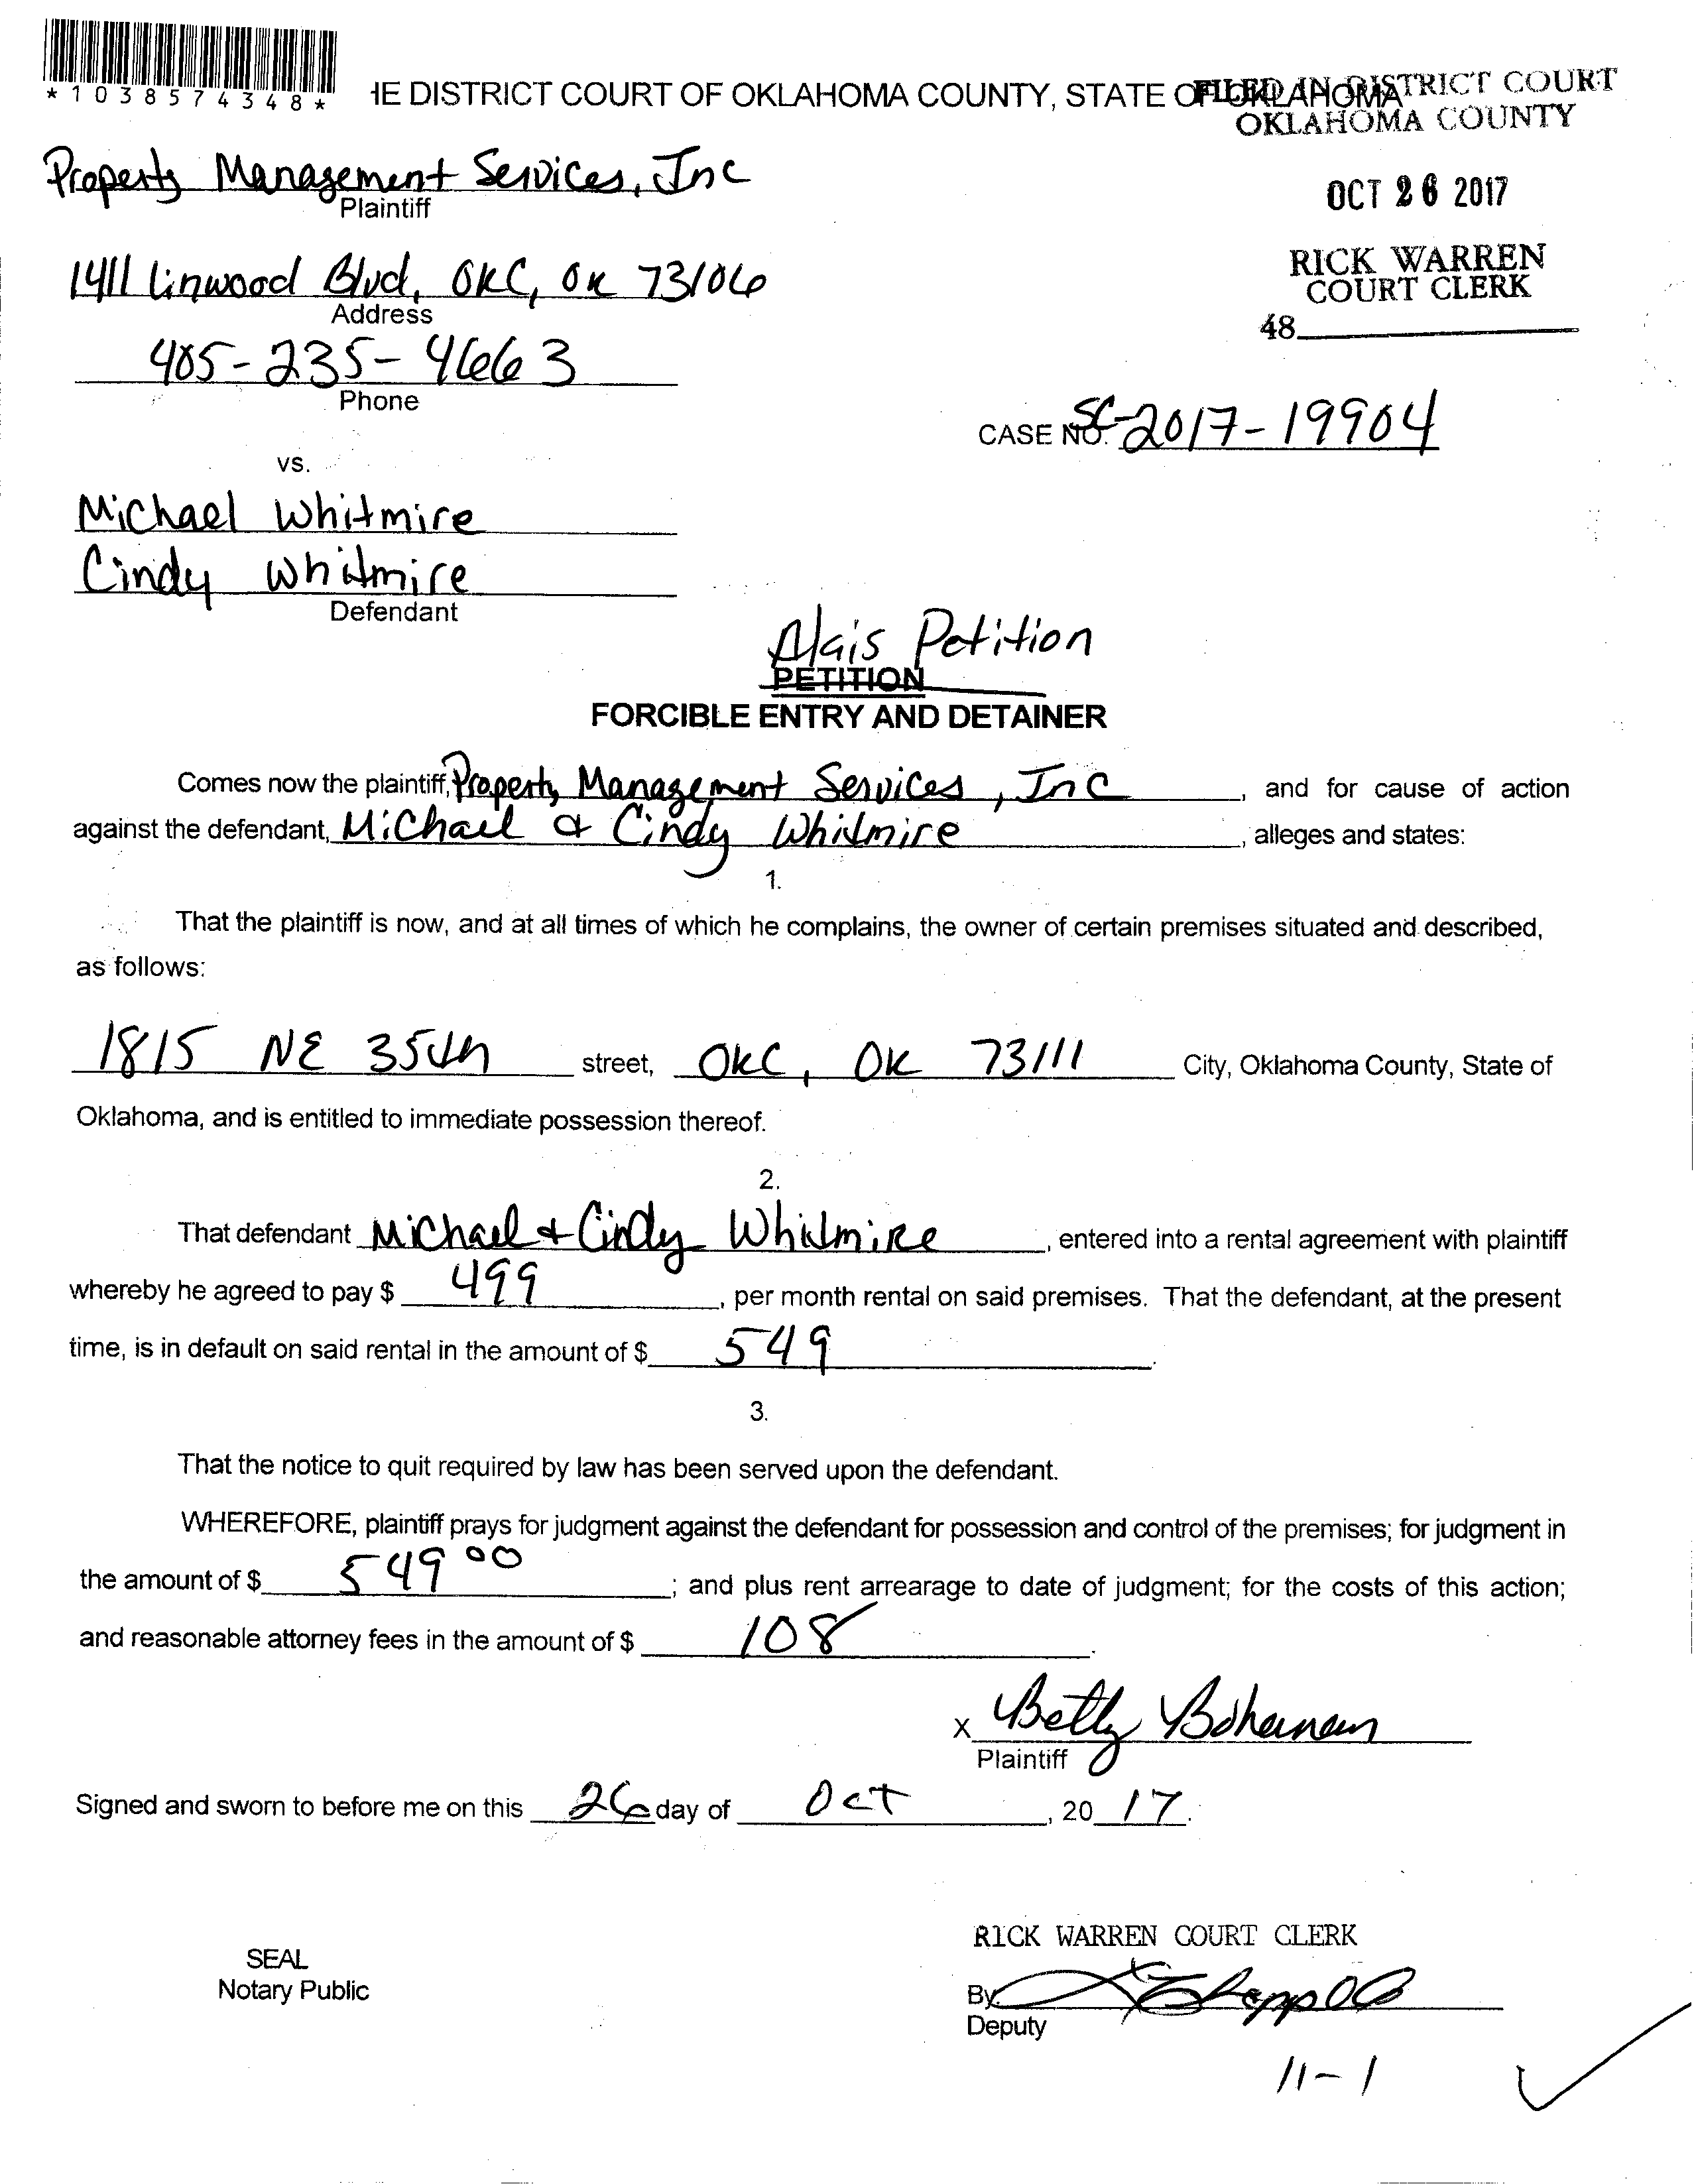 *1038574348*
HE DISTRICT COURT OF OKLAHOMA COUNTY, STATE OF OKLAHOMA
FILED IN DISTRICT COURT
OKLAHOMA COUNTY
Property Management Services, Inc
Plaintiff
OCT 26 2017
1411 Linwood Blvd, OKC, OK 73106
Address
RICK WARREN
COURT CLERK
48
405-235-4663
Phone
CASE NO. SC-2017-19904
vs.
Michael Whitmire
Cindy Whitmire
Defendant
Alais Petition
PETITION
FORCIBLE ENTRY AND DETAINER
Comes now the plaintiff, Property Management Services, Inc, and for cause of action
against the defendant, Michael & Cindy Whitmire, alleges and states:
1.
That the plaintiff is now, and at all times of which he complains, the owner of certain premises situated and described,
as follows:
1815 NE 35th street, OKC, OK 73111 City, Oklahoma County, State of
Oklahoma, and is entitled to immediate possession thereof.
2.
That defendant Michael & Cindy Whitmire, entered into a rental agreement with plaintiff
whereby he agreed to pay $ 499, per month rental on said premises. That the defendant, at the present
time, is in default on said rental in the amount of $ 549.
3.
That the notice to quit required by law has been served upon the defendant.
WHEREFORE, plaintiff prays for judgment against the defendant for possession and control of the premises; for judgment in
the amount of $ 549 00; and plus rent arrearage to date of judgment; for the costs of this action;
and reasonable attorney fees in the amount of $ 108.
x Betty Bohanan
Plaintiff
Signed and sworn to before me on this 26 day of Oct, 20 17.
RICK WARREN COURT CLERK
SEAL
Notary Public
By:
Deputy
11-1